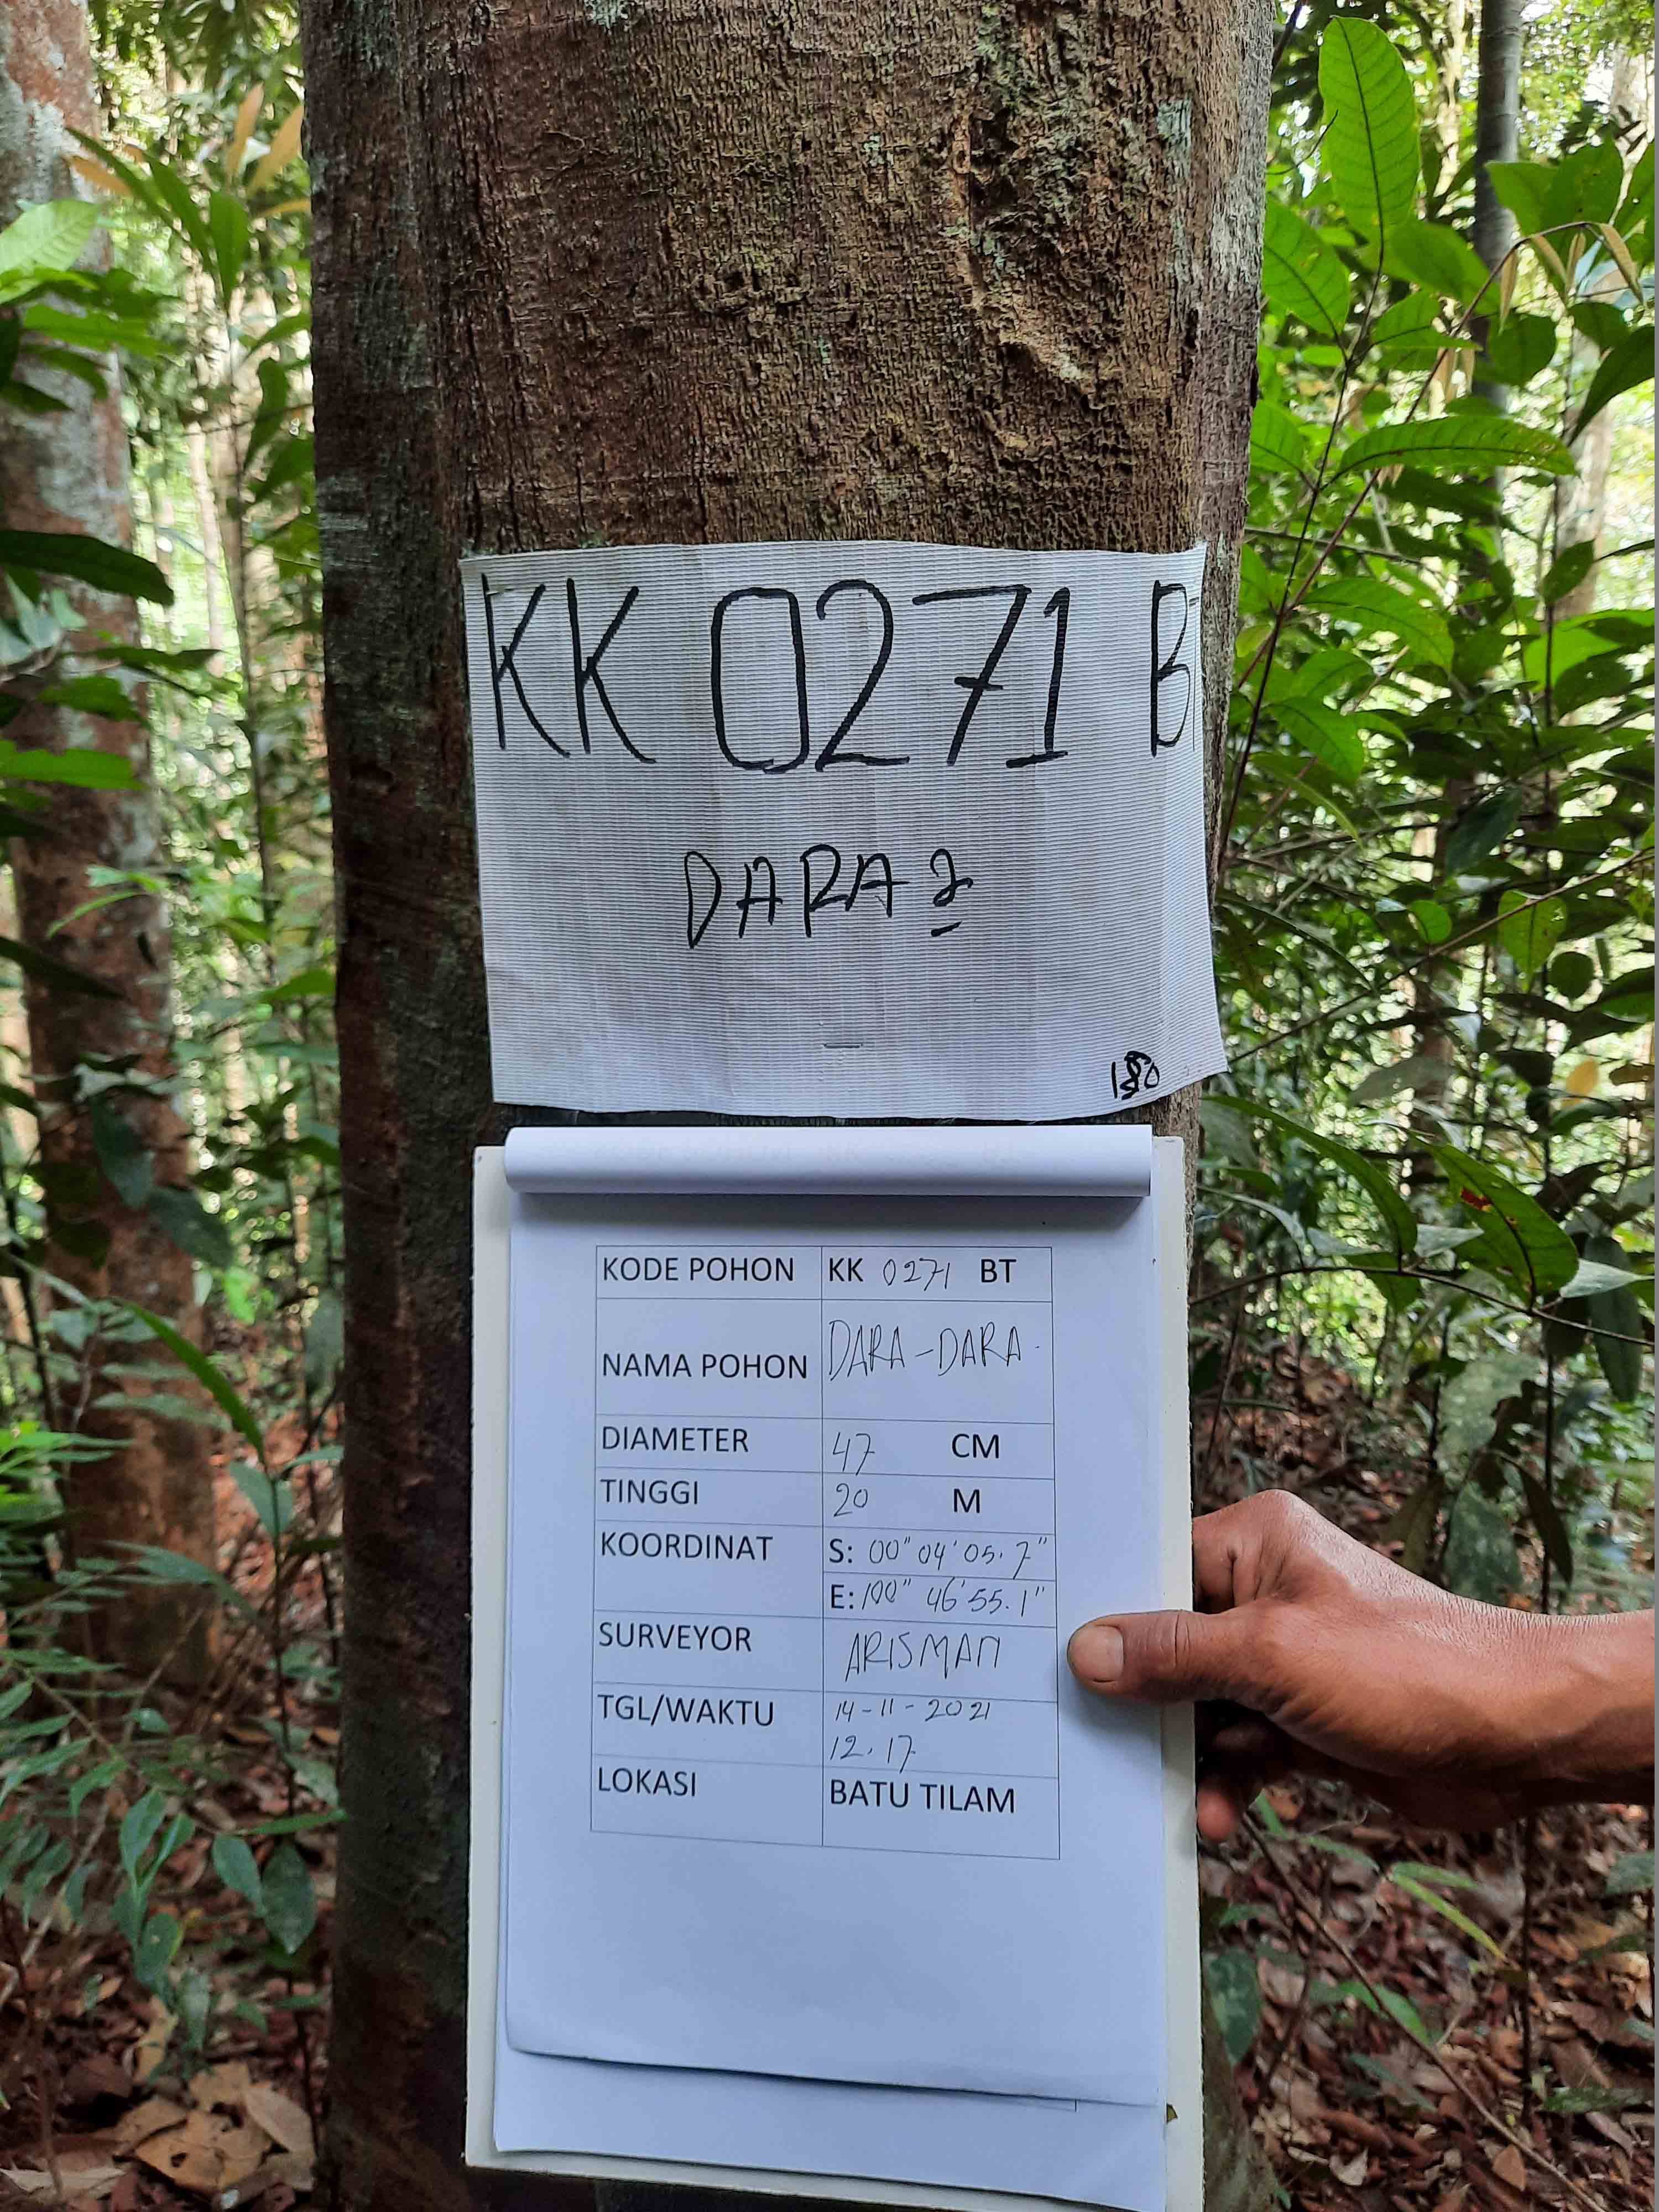 KK 0271 BT
DARA2
180
KODE POHON KK 0271 BT
NAMA POHON DARA-DARA
DIAMETER 47 CM
TINGGI 20 M
KOORDINAT S: 00" 04' 05.7"
E: 100" 46' 55.1"
SURVEYOR ARISMAN
TGL/WAKTU 14-11-2021
12.17
LOKASI BATU TILAM